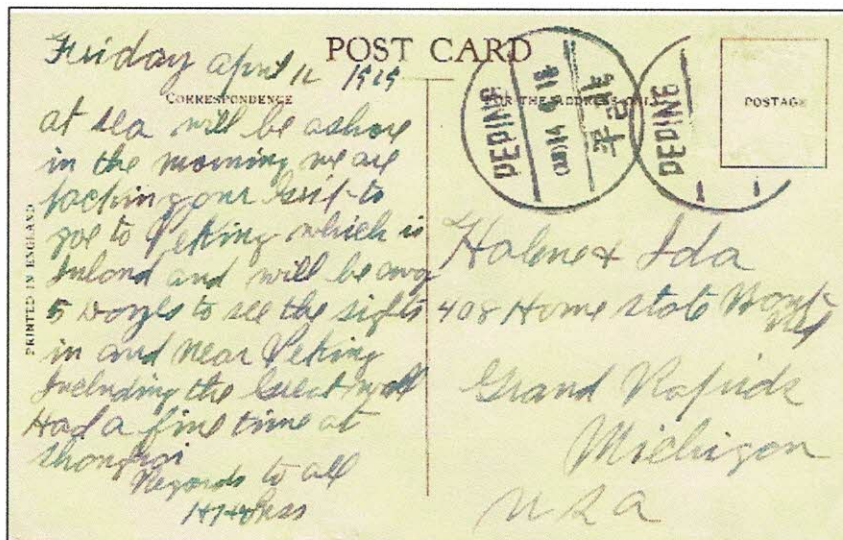 POST CARD
Friday April 12 1929
CORRESPONDENCE
FOR THE ADDRESS ONLY
POSTAGE
PEPING
平北
PEPING
PRINTED IN ENGLAND
at sea will be ashore
in the morning we are
packing our Grip to
goe to Peking which is
Inland and will be away
5 Dayes to see the sights
in and near Peking
Including the Great wall
Had a fine time at
Shanghai
Regards to all
Halene & Ida
408 Home State
Grand Rapids
Michigan
U S A